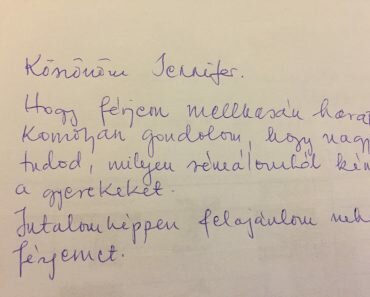 Köszönöm Jennifer.
Hogy férjem mellkasán
Komolyan gondolom, hogy nagy
tudod, milyen rémálomból
a gyerekeket.
Jutalomképpen felajánlom nek
férjemet.